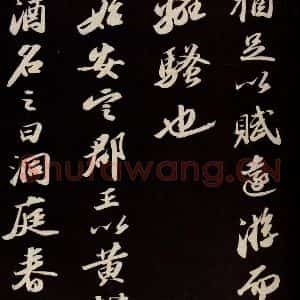 猶足以賦遠游而
離騷也
始安定郡王以黄柑
酒名之曰洞庭春
shufawang.CN